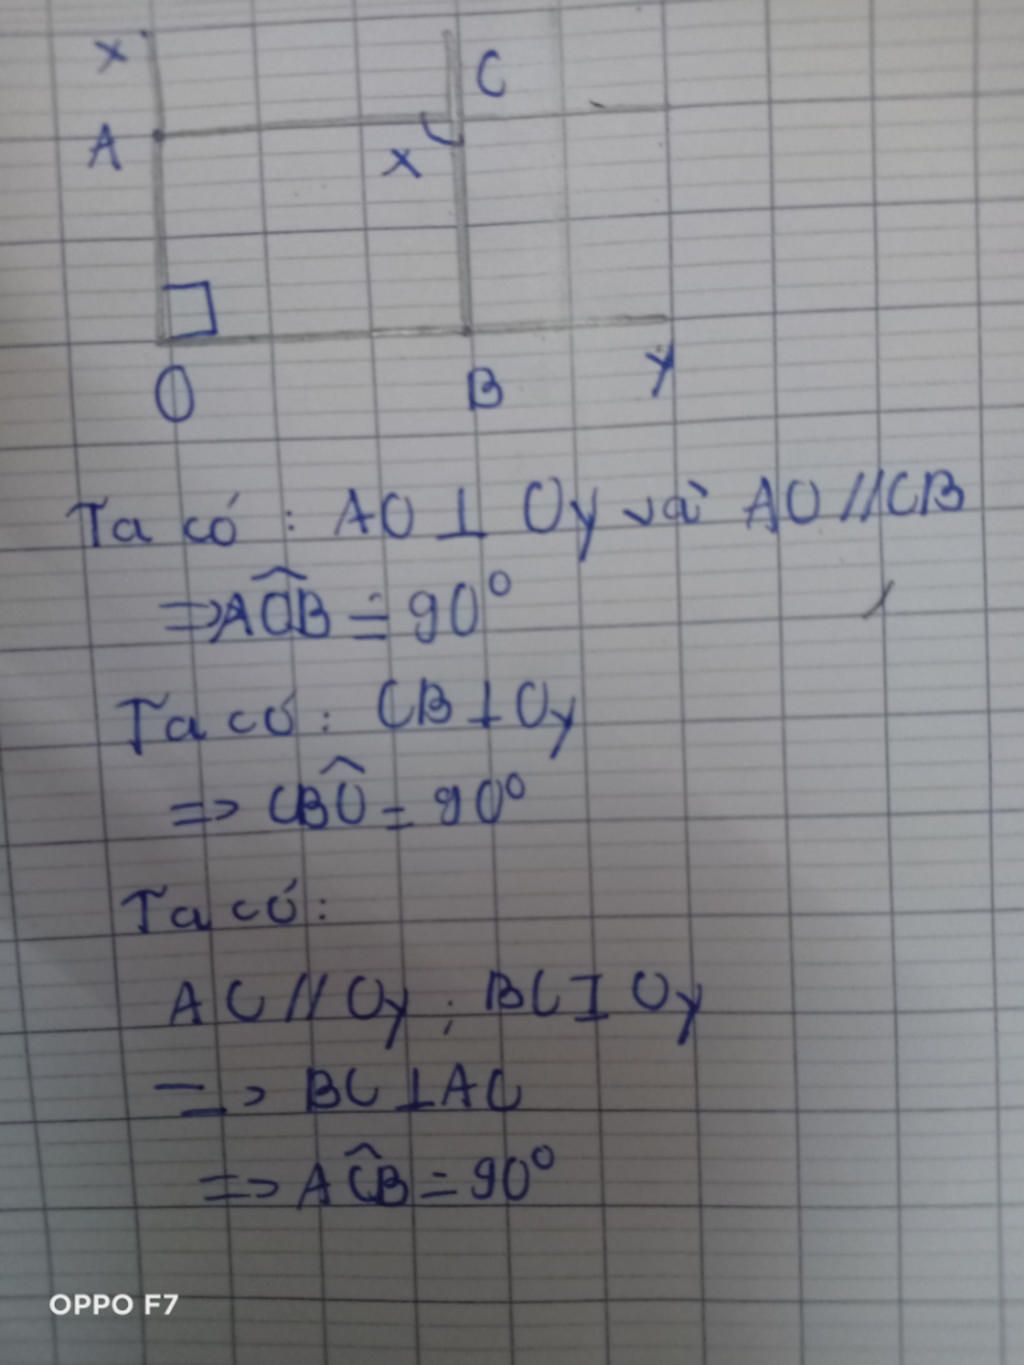 x
C
A
x
O
B
y
Ta có : AO ⊥ Oy và AO // CB
=> AÔB = 90°
Ta có : CB ⊥ Oy
=> CB̂O = 90°
Ta có :
AC // Oy ; BC ⊥ Oy
=> BC ⊥ AC
=> AĈB = 90°
OPPO F7